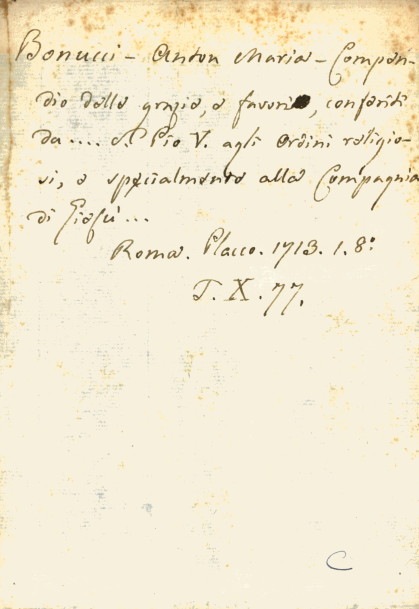 Bonucci - Anton Maria - Compen-
dio delle grazie, e favori, conferiti
da .... S. Pio V. agli Ordini religio-
si, e specialmente alla Compagnia
di Giesù ...
Roma. Placco. 1713. 1. 8º
T. X. 77.
C